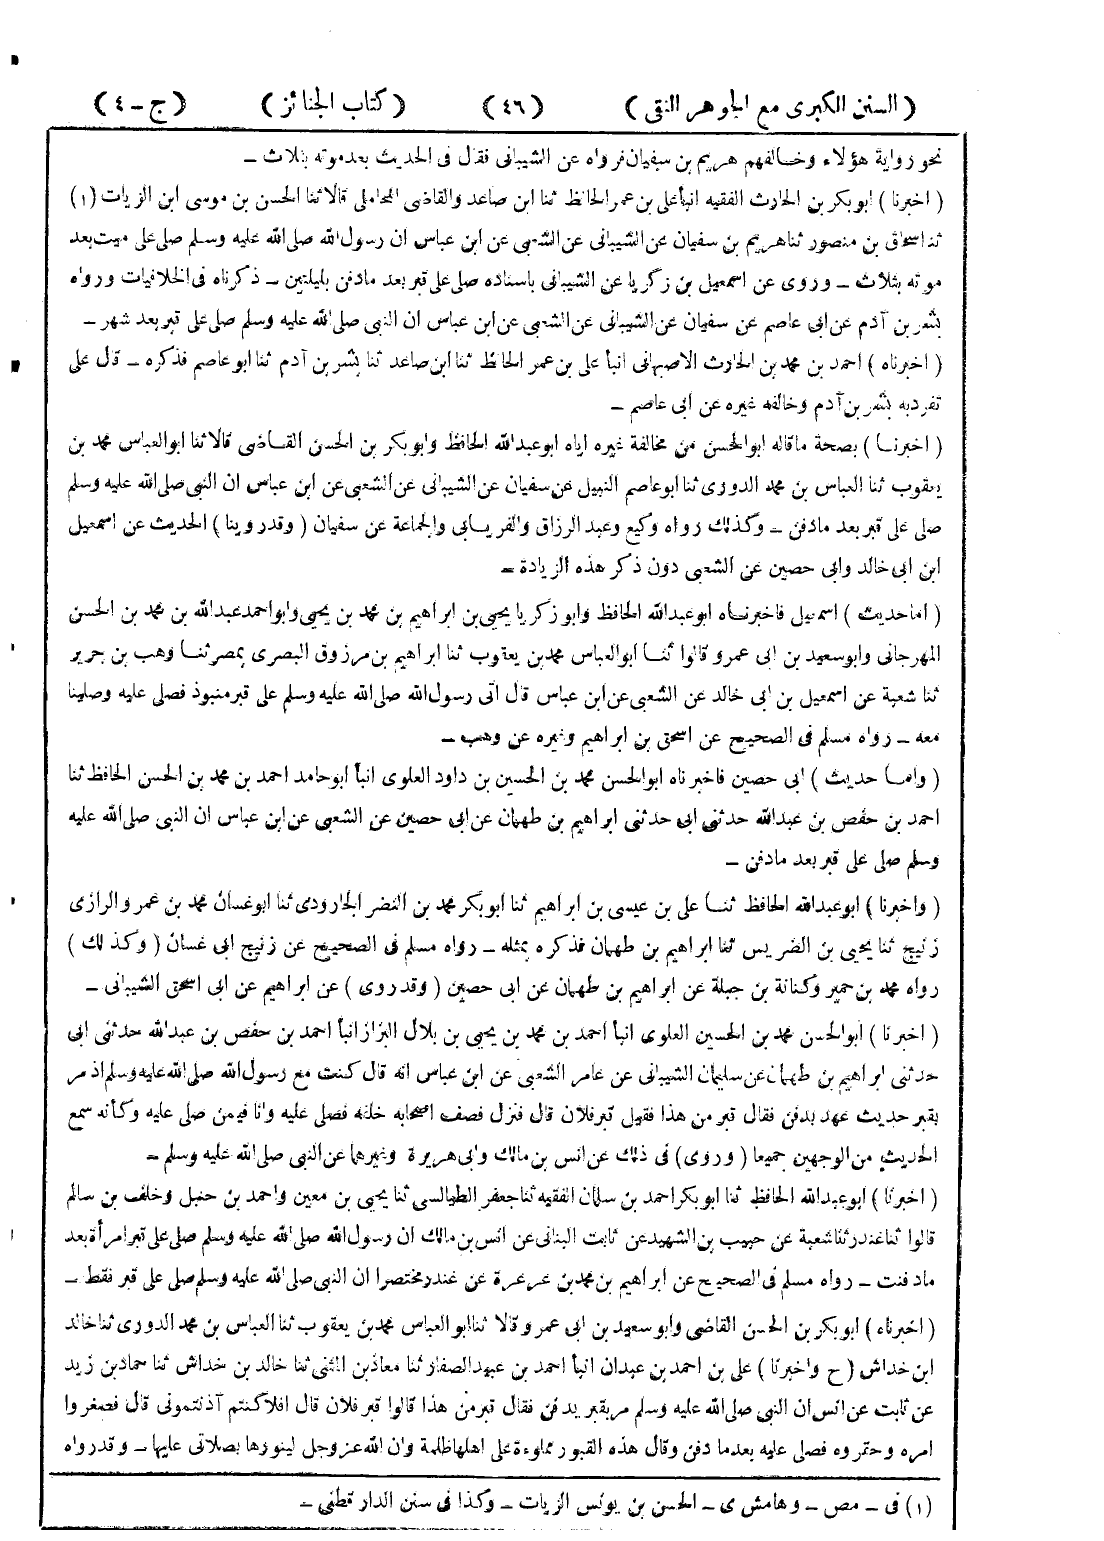 ( السنن الكبرى مع الجوهر النقى ) (٤٦) ( كتاب الجنائز ) ( ج - ٤ )
نحو رواية هؤلاء وخالفهم هريم بن سفيان فرواه عن الشيبانى فقال فى الحديث بعد موته بثلاث -
( اخبرنا ) ابو بكر بن الحارث الفقيه انبأ على بن عمر الحافظ ثنا ابن صاعد والقاضى المحاملى قالا ثنا الحسن بن موسى ابن الزيات (١)
ثنا اسحاق بن منصور ثنا هريم بن سفيان عن الشيبانى عن الشعبى عن ابن عباس ان رسول الله صلى الله عليه وسلم صلى على ميت بعد
موته بثلاث - وروى عن اسمعيل بن زكريا عن الشيبانى باسناده صلى على قبر بعد مادفن بليلتين - ذكرناه فى الخلافيات ورواه
بشر بن آدم عن ابى عاصم عن سفيان عن الشيبانى عن الشعبى عن ابن عباس ان النبى صلى الله عليه وسلم صلى على قبر بعد شهر -
( اخبرناه ) احمد بن محمد بن الحارث الاصبهانى انبأ على بن عمر الحافظ ثنا ابن صاعد ثنا بشر بن آدم ثنا ابو عاصم فذكره - قال على
تفرد به بشر بن آدم وخالفه غيره عن ابى عاصم -
( اخبرنا ) بصحة ماقاله ابو الحسن من مخالفة غيره اياه ابو عبد الله الحافظ وابو بكر بن الحسن القاضى قالا ثنا ابو العباس محمد بن
يعقوب ثنا العباس بن محمد الدورى ثنا ابو عاصم النبيل عن سفيان عن الشيبانى عن الشعبى عن ابن عباس ان النبى صلى الله عليه وسلم
صلى على قبر بعد مادفن - وكذلك رواه وكيع وعبد الرزاق والفريابى والجماعة عن سفيان ( وقد روينا ) الحديث عن اسمعيل
ابن ابى خالد وابى حصين عن الشعبى دون ذكر هذه الزيادة -
( اما حديث ) اسمعيل فاخبرناه ابو عبد الله الحافظ وابو زكريا يحيى بن ابراهيم بن محمد بن يحيى وابو احمد عبد الله بن محمد بن الحسن
المهرجانى وابو سعيد بن ابى عمرو قالوا ثنا ابو العباس محمد بن يعقوب ثنا ابراهيم بن مرزوق البصرى بمصر ثنا وهب بن جرير
ثنا شعبة عن اسمعيل بن ابى خالد عن الشعبى عن ابن عباس قال اتى رسول الله صلى الله عليه وسلم على قبر منبوذ فصلى عليه وصلينا
معه - رواه مسلم فى الصحيح عن اسحق بن ابراهيم وغيره عن وهب -
( واما حديث ) ابى حصين فاخبرناه ابو الحسن محمد بن الحسين بن داود العلوى انبأ ابو حامد احمد بن محمد بن الحسن الحافظ ثنا
احمد بن حفص بن عبد الله حدثنى ابى حدثنى ابراهيم بن طهمان عن ابى حصين عن الشعبى عن ابن عباس ان النبى صلى الله عليه
وسلم صلى على قبر بعد مادفن -
( واخبرنا ) ابو عبد الله الحافظ ثنا على بن عيسى بن ابراهيم ثنا ابو بكر محمد بن النضر الجارودى ثنا ابو غسان محمد بن عمرو الرازى
زنيج ثنا يحيى بن الضريس ثنا ابراهيم بن طهمان فذكره بمثله - رواه مسلم فى الصحيح عن زنيج ابى غسان ( وكذلك )
رواه محمد بن حمير وكنانة بن جبلة عن ابراهيم بن طهمان عن ابى حصين ( وقد روى ) عن ابراهيم عن ابى اسحق الشيبانى -
( اخبرنا ) ابو الحسن محمد بن الحسين العلوى انبأ احمد بن محمد بن يحيى بن بلال البزاز انبأ احمد بن حفص بن عبد الله حدثنى ابى
حدثنى ابراهيم بن طهمان عن سليمان الشيبانى عن عامر الشعبى عن ابن عباس انه قال كنت مع رسول الله صلى الله عليه وسلم اذ مر
بقبر حديث عهد بدفن فقال قبر من هذا فقيل قبر فلان قال فنزل فصف اصحابه خلفه فصلى عليه وانا فيمن صلى عليه وكأنه سمع
الحديث من الوجهين جميعا ( وروى ) فى ذلك عن انس بن مالك وابى هريرة وغيرهما عن النبى صلى الله عليه وسلم -
( اخبرنا ) ابو عبد الله الحافظ ثنا ابو بكر احمد بن سلمان الفقيه ثنا جعفر الطيالسى ثنا يحيى بن معين واحمد بن حنبل وخلف بن سالم
قالوا ثنا غندر ثنا شعبة عن حبيب بن الشهيد عن ثابت البنانى عن انس بن مالك ان رسول الله صلى الله عليه وسلم صلى على قبر امرأة بعد
مادفنت - رواه مسلم فى الصحيح عن ابراهيم بن محمد بن عرعرة عن غندر مختصرا ان النبى صلى الله عليه وسلم صلى على قبر فقط -
( اخبرناه ) ابو بكر بن الحسن القاضى وابو سعيد بن ابى عمرو قالا ثنا ابو العباس محمد بن يعقوب ثنا العباس بن محمد الدورى ثنا خالد
ابن خداش ( ح واخبرنا ) على بن احمد بن عبدان انبأ احمد بن عبيد الصفار ثنا معاذ بن المثنى ثنا خالد بن خداش ثنا حماد بن زيد
عن ثابت عن انس ان النبى صلى الله عليه وسلم مر بقبر يدفن فقال قبر من هذا قالوا قبر فلان قال افلا كنتم آذنتمونى قال فصغروا
امره وحقروه فصلى عليه بعدما دفن وقال هذه القبور مملوءة على اهلها ظلمة وان الله عز وجل لينورها بصلاتى عليها - وقد رواه
(١) فى - مص - وهامش ى - الحسن بن يونس الزيات - وكذا فى سنن الدار قطنى -